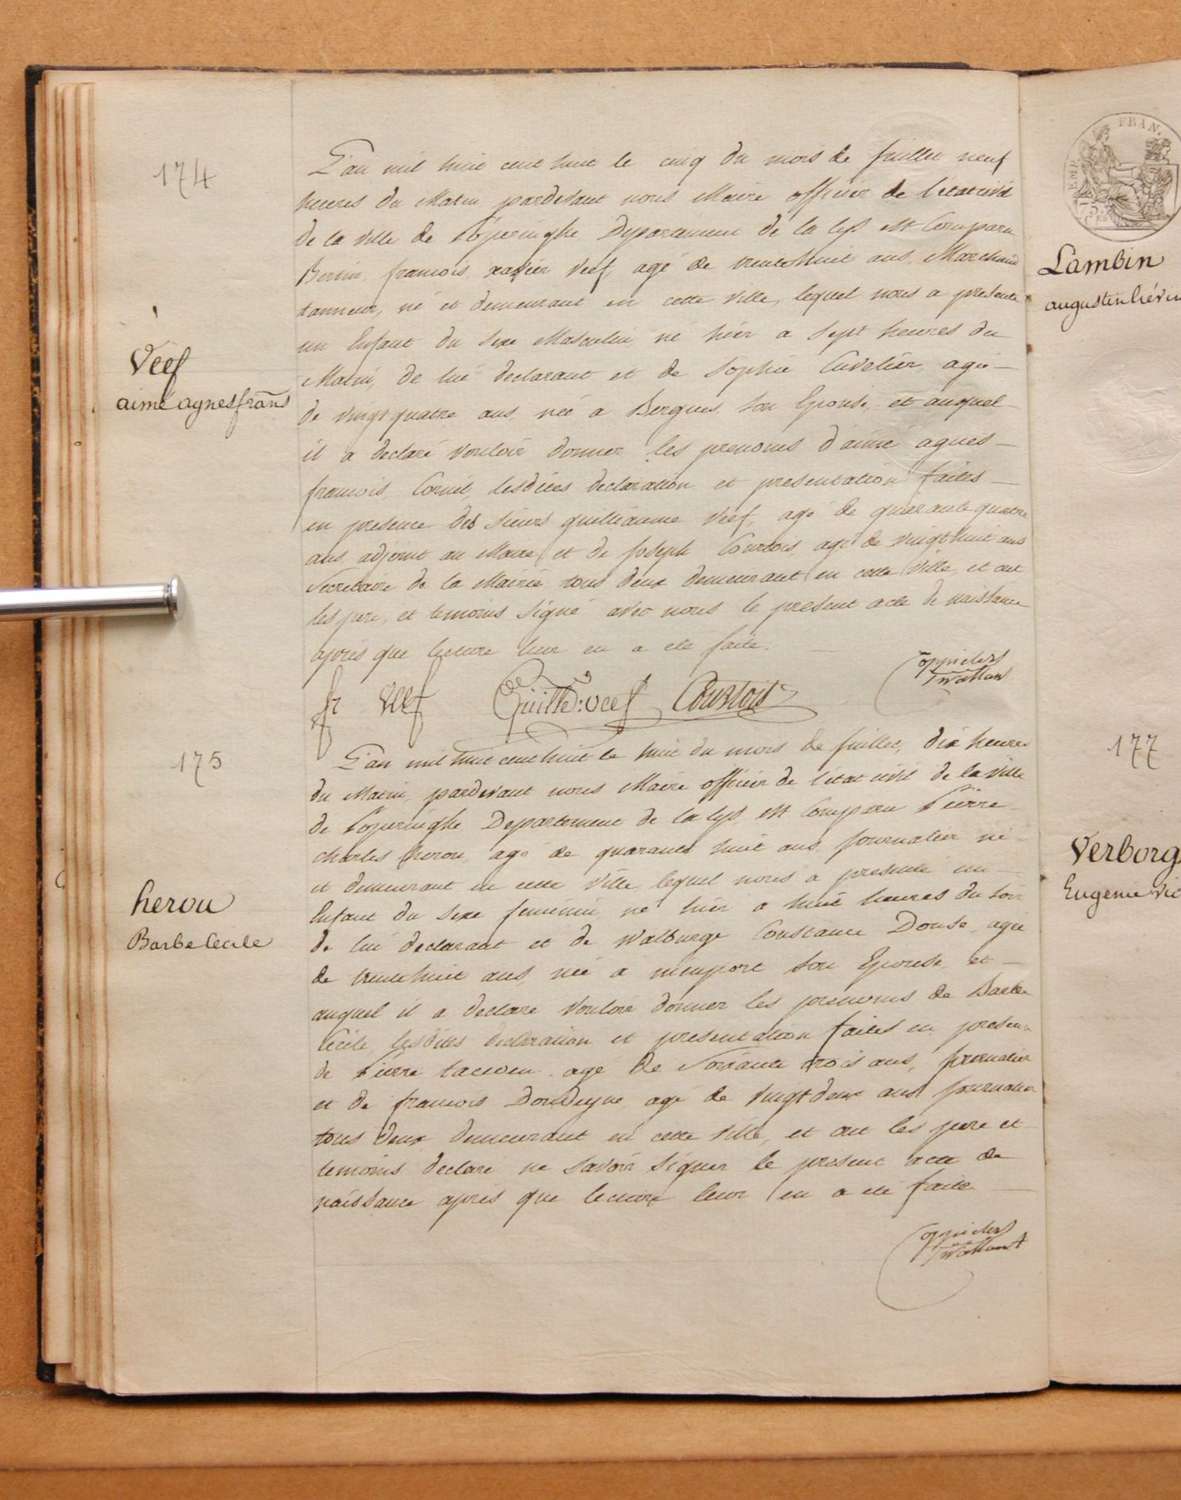 174
L'an mil huit cent huit le cinq du mois de juillet neuf
heures du Matin pardevant nous Maire officier de l'etat civil
de la ville de Poperinghe Departement de la Lys est Comparu
Bertin francois xavier Veef agé de trentehuit ans, Marchand
tanneur, né et demeurant en cette ville, lequel nous a presenté
un Enfant du sexe Masculin né hier a sept heures du
Matin, de lui declarant et de Sophie Cuvelier, agée
de vingt quatre ans née à Bergues son Epouse, et auquel
il a declaré vouloir donner les prenoms d'aimé agnes
francois Cornil, lesdites declaration et presentation faites
en presence des sieurs guilleaume Veef, agé de quarante quatre
ans adjoint au Maire, et de Joseph Courtois agé de vingt huit ans
Secretaire de la Mairie tous deux demeurant en cette ville, et ont
les pere, et temoins signé avec nous le present acte de naissance
apres que lecture leur en a eté faite.
Veef
aimé agnes frans
fr Veef Guille: Veef Courtois
175
L'an mil huit cent huit le huit du mois de juillet, dix heures
du Matin, pardevant nous Maire officier de l'etat civil de la ville
de Poperinghe Departement de la Lys est Comparu Pierre
charles herou, agé de quarante huit ans journalier né
et demeurant en cette ville lequel nous a presenté un
Enfant du sexe feminin né hier a huit heures du soir
de lui declarant et de Walburge Constance Douse, agée
de trentehuit ans, née a nieuport son Epouse et
auquel il a declaré vouloir donner les prenoms de Barbe
Cécile, lesdites declaration et presentation faites en presence
de Pierre agé de soixante trois ans, journalier
et de francois agé de vingt deux ans journalier
tous deux demeurant en cette ville, et ont les pere et
temoins declaré ne savoir signer le present acte de
naissance après que lecture leur en a eté faite
herou
Barbe Cécile
Lambin
augustin
177
Verborg
Eugenie Vic